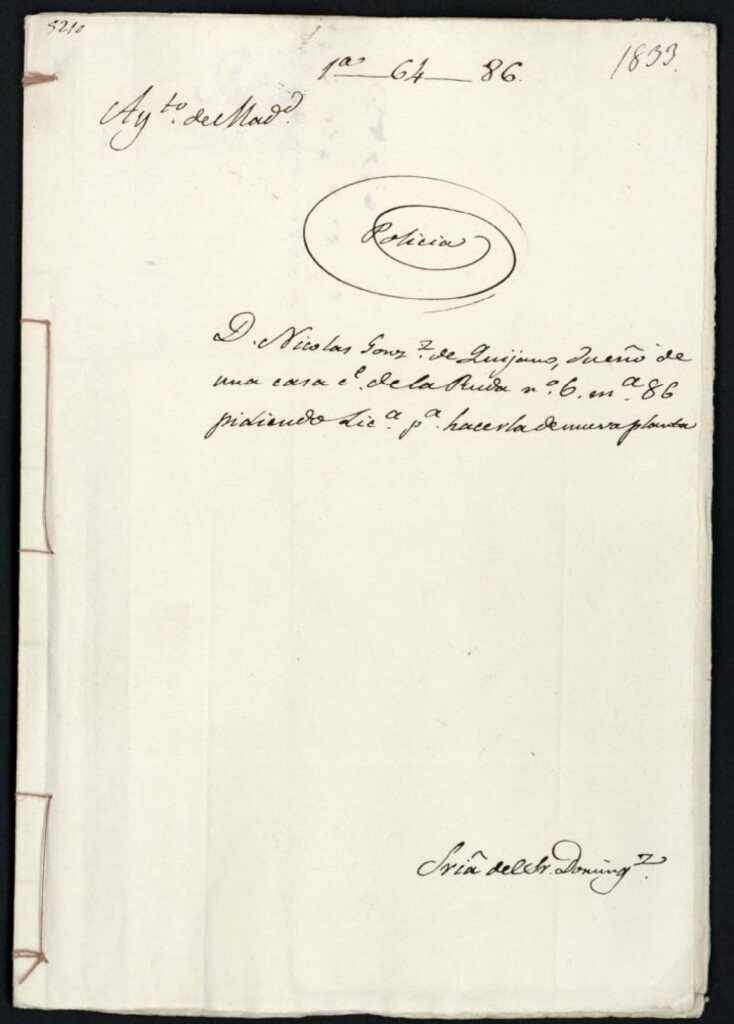 3210
1ª 64 86.
1833.
Ayto. de Madd.
Policia
D. Nicolas Gonz. de Quijano, dueño de
una casa ce. de la Ruda nº. 6. mª. 86
pidiendo Licª. pª. hacerla de nueva planta
Sria del Sr. Domingz.